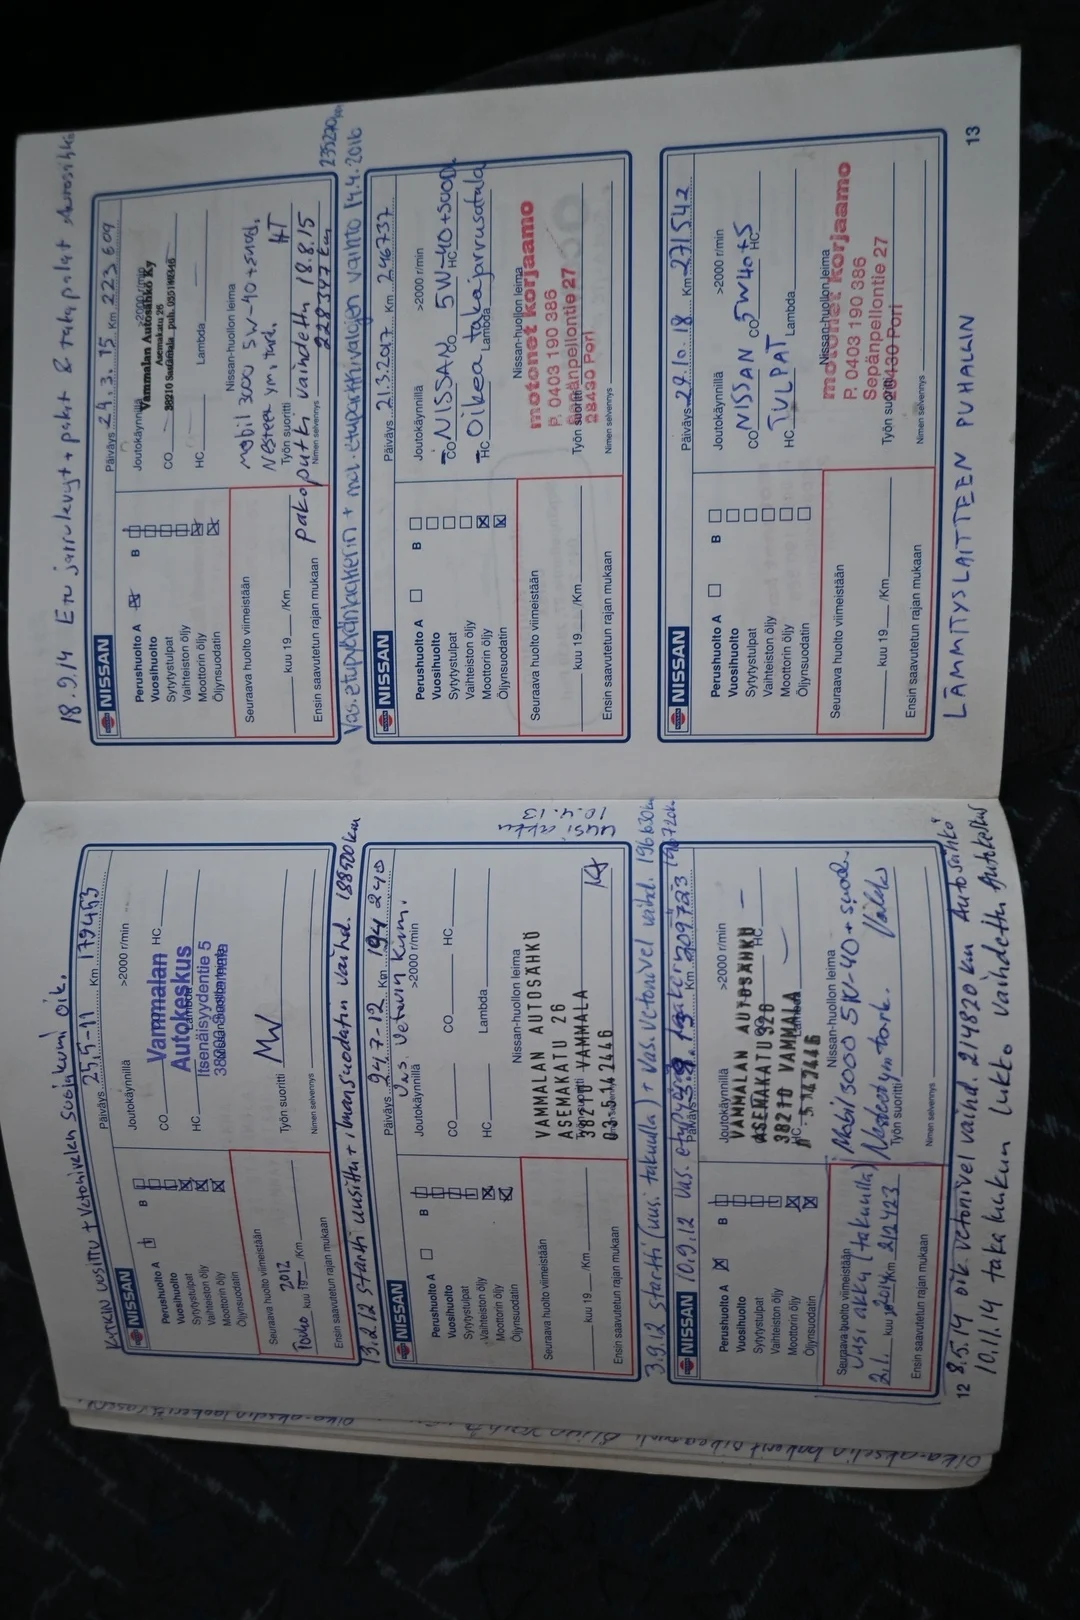 Kytkin uusittu + Vetonivelen suojakumi oik.
NISSAN
Päiväys 25.5-11 Km 179453
Perushuolto A B
Vuosihuolto
Sytytystulpat
Vaihteiston öljy
Moottorin öljy
Öljynsuodatin
Joutokäynnillä >2000 r/min
CO HC
HC Lambda
Vammalan
Autokeskus
Itsenäisyydentie 5
Seuraava huolto viimeistään
Touko kuu 19 2012 /Km
Ensin saavutetun rajan mukaan
Työn suoritti MW
Nimen selvennys
13.2.12 startti uusittu + ilmansuodatin vaihd. 188500 km
NISSAN
Päiväys 24.7-12 Km 194 240
Vas. Vetäwin kumi.
Perushuolto A B
Vuosihuolto
Sytytystulpat
Vaihteiston öljy
Moottorin öljy
Öljynsuodatin
Joutokäynnillä >2000 r/min
CO CO HC
HC Lambda
Nissan-huollon leima
VAMMALAN AUTOSÄHKÖ
ASEMAKATU 26
38210 VAMMALA
03-5142446
Seuraava huolto viimeistään
kuu 19 /Km
Ensin saavutetun rajan mukaan
Nimen selvennys
Uusi akku
10.4.12
3.9.12 startti (uusi takuulla) + Vas. vetonivel vaihd. 196630 km
10.9.12 Vas. etupyörän laakeri 196720km
NISSAN
Km 209723
Perushuolto A B
Vuosihuolto
Sytytystulpat
Vaihteiston öljy
Moottorin öljy
Öljynsuodatin
Joutokäynnillä >2000 r/min
VAMMALAN AUTOSÄHKÖ
ASEMAKATU 26
38210 VAMMALA
Nissan-huollon leima
Mobil 3000 5W-40 + suod.
Seuraava huolto viimeistään
Uusi akku (takuulla)
2.1. kuu 2014 /Km 212423
Ensin saavutetun rajan mukaan
Työn suoritti
Nimen selvennys
12
8.5.14 oik. vetonivel vaihd. 214820 km Autosähkö
10.11.14 taka luukun lukko vaihdettu Autokeskus
18.9.14 Etu jarrulevyt + palat & taka palat Autosähkö
NISSAN
Päiväys 24.3.15 Km 223 609
Perushuolto A B
Vuosihuolto
Sytytystulpat
Vaihteiston öljy
Moottorin öljy
Öljynsuodatin
Joutokäynnillä >2000 r/min
Vammalan Autosähkö Ky
Asemakatu 26
38210 Sastamala
CO
HC Lambda
Nissan-huollon leima
Mobil 3000 5W-40 + suod.
Nesteen ym. tark.
Työn suoritti HT
Seuraava huolto viimeistään
kuu 19 /Km
Ensin saavutetun rajan mukaan
pakoputki vaihdettu 18.8.15
Nimen selvennys 228347 km
235290 km
Vas. etupyöränlaakerin + mol. etuparkkivalojen vaihto 14.4.2016
NISSAN
Päiväys 21.3.2017 Km 246737
Perushuolto A B
Vuosihuolto
Sytytystulpat
Vaihteiston öljy
Moottorin öljy
Öljynsuodatin
Joutokäynnillä >2000 r/min
CO NISSAN CO 5W-40 + SUOD. HC
HC Oikea takajarrusatula
Lambda
Nissan-huollon leima
motonet korjaamo
P. 0403 190 386
Sepänpellontie 27
28430 Pori
Seuraava huolto viimeistään
kuu 19 /Km
Ensin saavutetun rajan mukaan
Työn suoritti
Nimen selvennys
NISSAN
Päiväys 29.10.18 Km 271542
Perushuolto A B
Vuosihuolto
Sytytystulpat
Vaihteiston öljy
Moottorin öljy
Öljynsuodatin
Joutokäynnillä >2000 r/min
CO NISSAN CO 5W40+S HC
HC TULPAT Lambda
Nissan-huollon leima
motonet korjaamo
P. 0403 190 386
Sepänpellontie 27
28430 Pori
Seuraava huolto viimeistään
kuu 19 /Km
Ensin saavutetun rajan mukaan
Työn suoritti
Nimen selvennys
LÄMMITYSLAITTEEN PUHALLIN
13